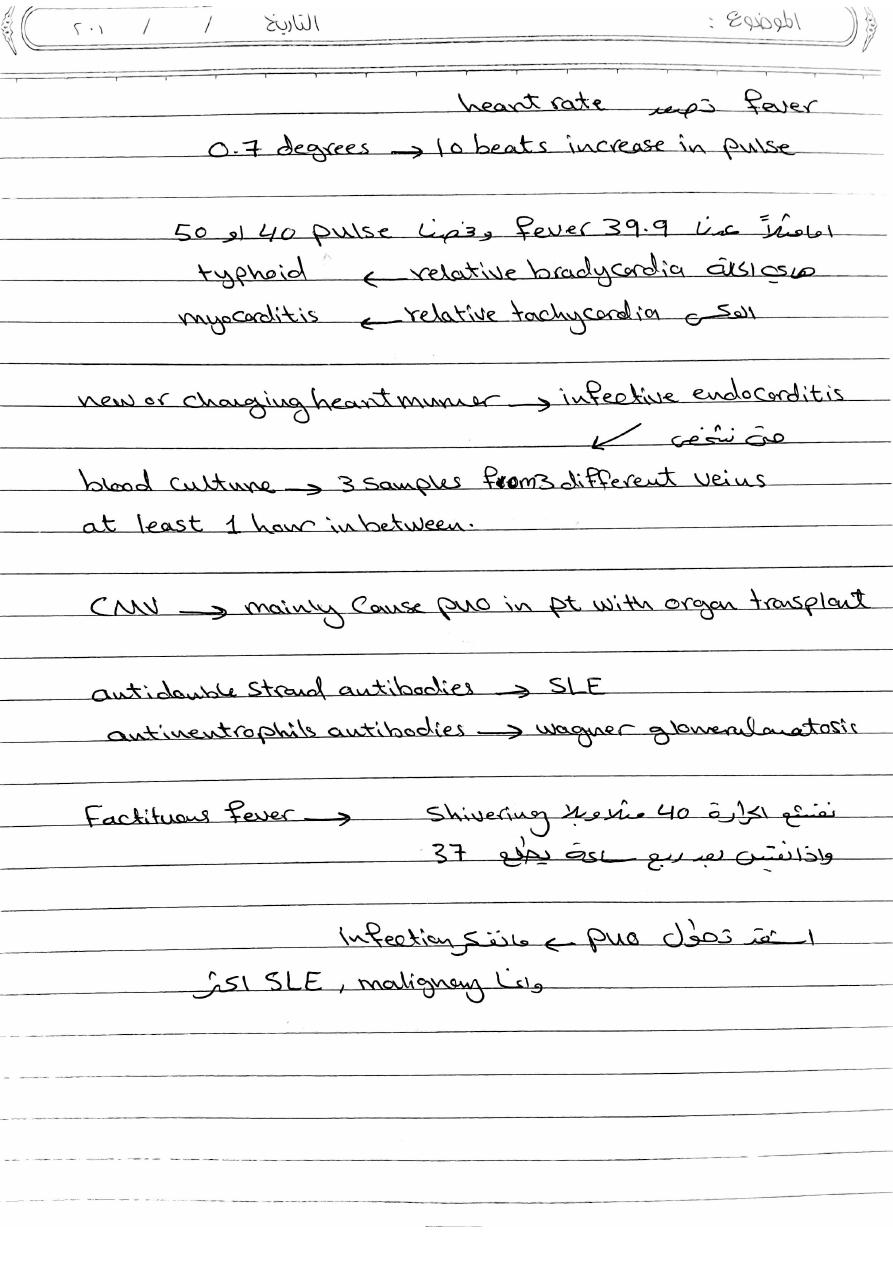 الموضوع : التاريخ / / ٢٠١
fever heart rate
0.7 degrees → 10 beats increase in pulse
اما مثلاً عنا fever 39.9 وخصنا pulse 40 او 50
relative bradycardia ← typhoid
العكس relative tachycardia ← myocarditis
new or changing heart mumer → infective endocarditis
↙
blood culture → 3 samples from 3 different veins
at least 1 hour in between.
CMV → mainly cause puo in pt with organ transplant
antidouble strand antibodies → SLE
antineutrophils antibodies → wagner glomerulonatosis
Factituous fever → الحرارة 40 shivering
واذا بعد ربع ساعة يطلع 37
puo ← infection
وانما malignany , SLE اكثر